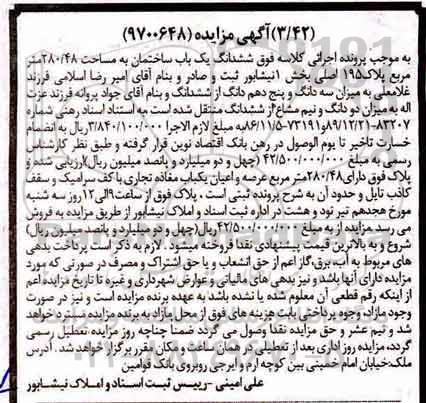 (۳/۴۲)آگهی مزایده (۹۷۰۰۶۴۸)
به موجب پرونده اجرائی کلاسه فوق ششدانگ یک باب ساختمان به مساحت ۲۸۰/۴۸متر
مربع پلاک۱۹۵ اصلی بخش ۱نیشابور ثبت و صادر و بنام آقای امیر رضا اسلامی فرزند
غلامعلی به میزان سه دانگ و پنج دهم دانگ از ششدانگ و بنام آقای جواد پروانه فرزند عزت
اله به میزان دو دانگ و نیم مشاع از ششدانگ منتقل شده است به استناد اسناد رهنی شماره
۸۳۲۰۷-۸۹/۱۲/۲۱و۷۳۱۹۱-۸۶/۱۱/۵به مبلغ لازم الاجرا ۳/۸۴۰/۱۰۰/۰۰۰ریال به انضمام
خسارت تاخیر تا یوم الوصول در رهن بانک اقتصاد نوین قرار گرفته و طبق نظر کارشناس
رسمی به مبلغ ۴۲/۵۰۰/۰۰۰/۰۰۰ (چهل و دو میلیارد و پانصد میلیون ریال)ارزیابی شده و
پلاک فوق دارای۲۸۰/۴۸متر مربع عرصه و اعیان یکباب مغازه تجاری با کف سرامیک و سقف
کاذب تایل و حدود آن به شرح پرونده ثبتی است . پلاک فوق از ساعت۹الی۱۲روز سه شنبه
مورخ هجدهم تیر نود و هشت در اداره ثبت اسناد و املاک نیشابور از طریق مزایده به فروش
می رسد.مزایده از به مبلغ ۴۲/۵۰۰/۰۰۰/۰۰۰ریال(چهل و دو میلیارد و پانصد میلیون ریال)
شروع و به بالاترین قیمت پیشنهادی نقدا فروخته میشود. لازم به ذکر است پرداخت بدهی
های مربوط به آب، برق،گاز اعم از حق انشعاب و یا حق اشتراک و مصرف در صورتی که مورد
مزایده دارای آنها باشد و نیز بدهی های مالیاتی و عوارض شهرداری و غیره تا تاریخ مزایده اعم
از اینکه رقم قطعی آن معلوم شده یا نشده باشد به عهده برنده مزایده است و نیز در صورت
وجود مازاد، وجوه پرداختی بابت هزینه های فوق از محل مازاد به برنده مزایده مسترد خواهد
شد و نیم عشر و حق مزایده نقدا وصول می گردد ضمنا چناچه روز مزایده تعطیل رسمی
گردد، مزایده روز اداری بعد از تعطیلی در همان ساعت و مکان مقرر برگزار خواهد شد . آدرس
ملک:خیابان امام خمینی بین کوچه ارم و ایرجی روبروی بانک قوامین
علی امینی -رییس ثبت اسناد و املاک نیشابور